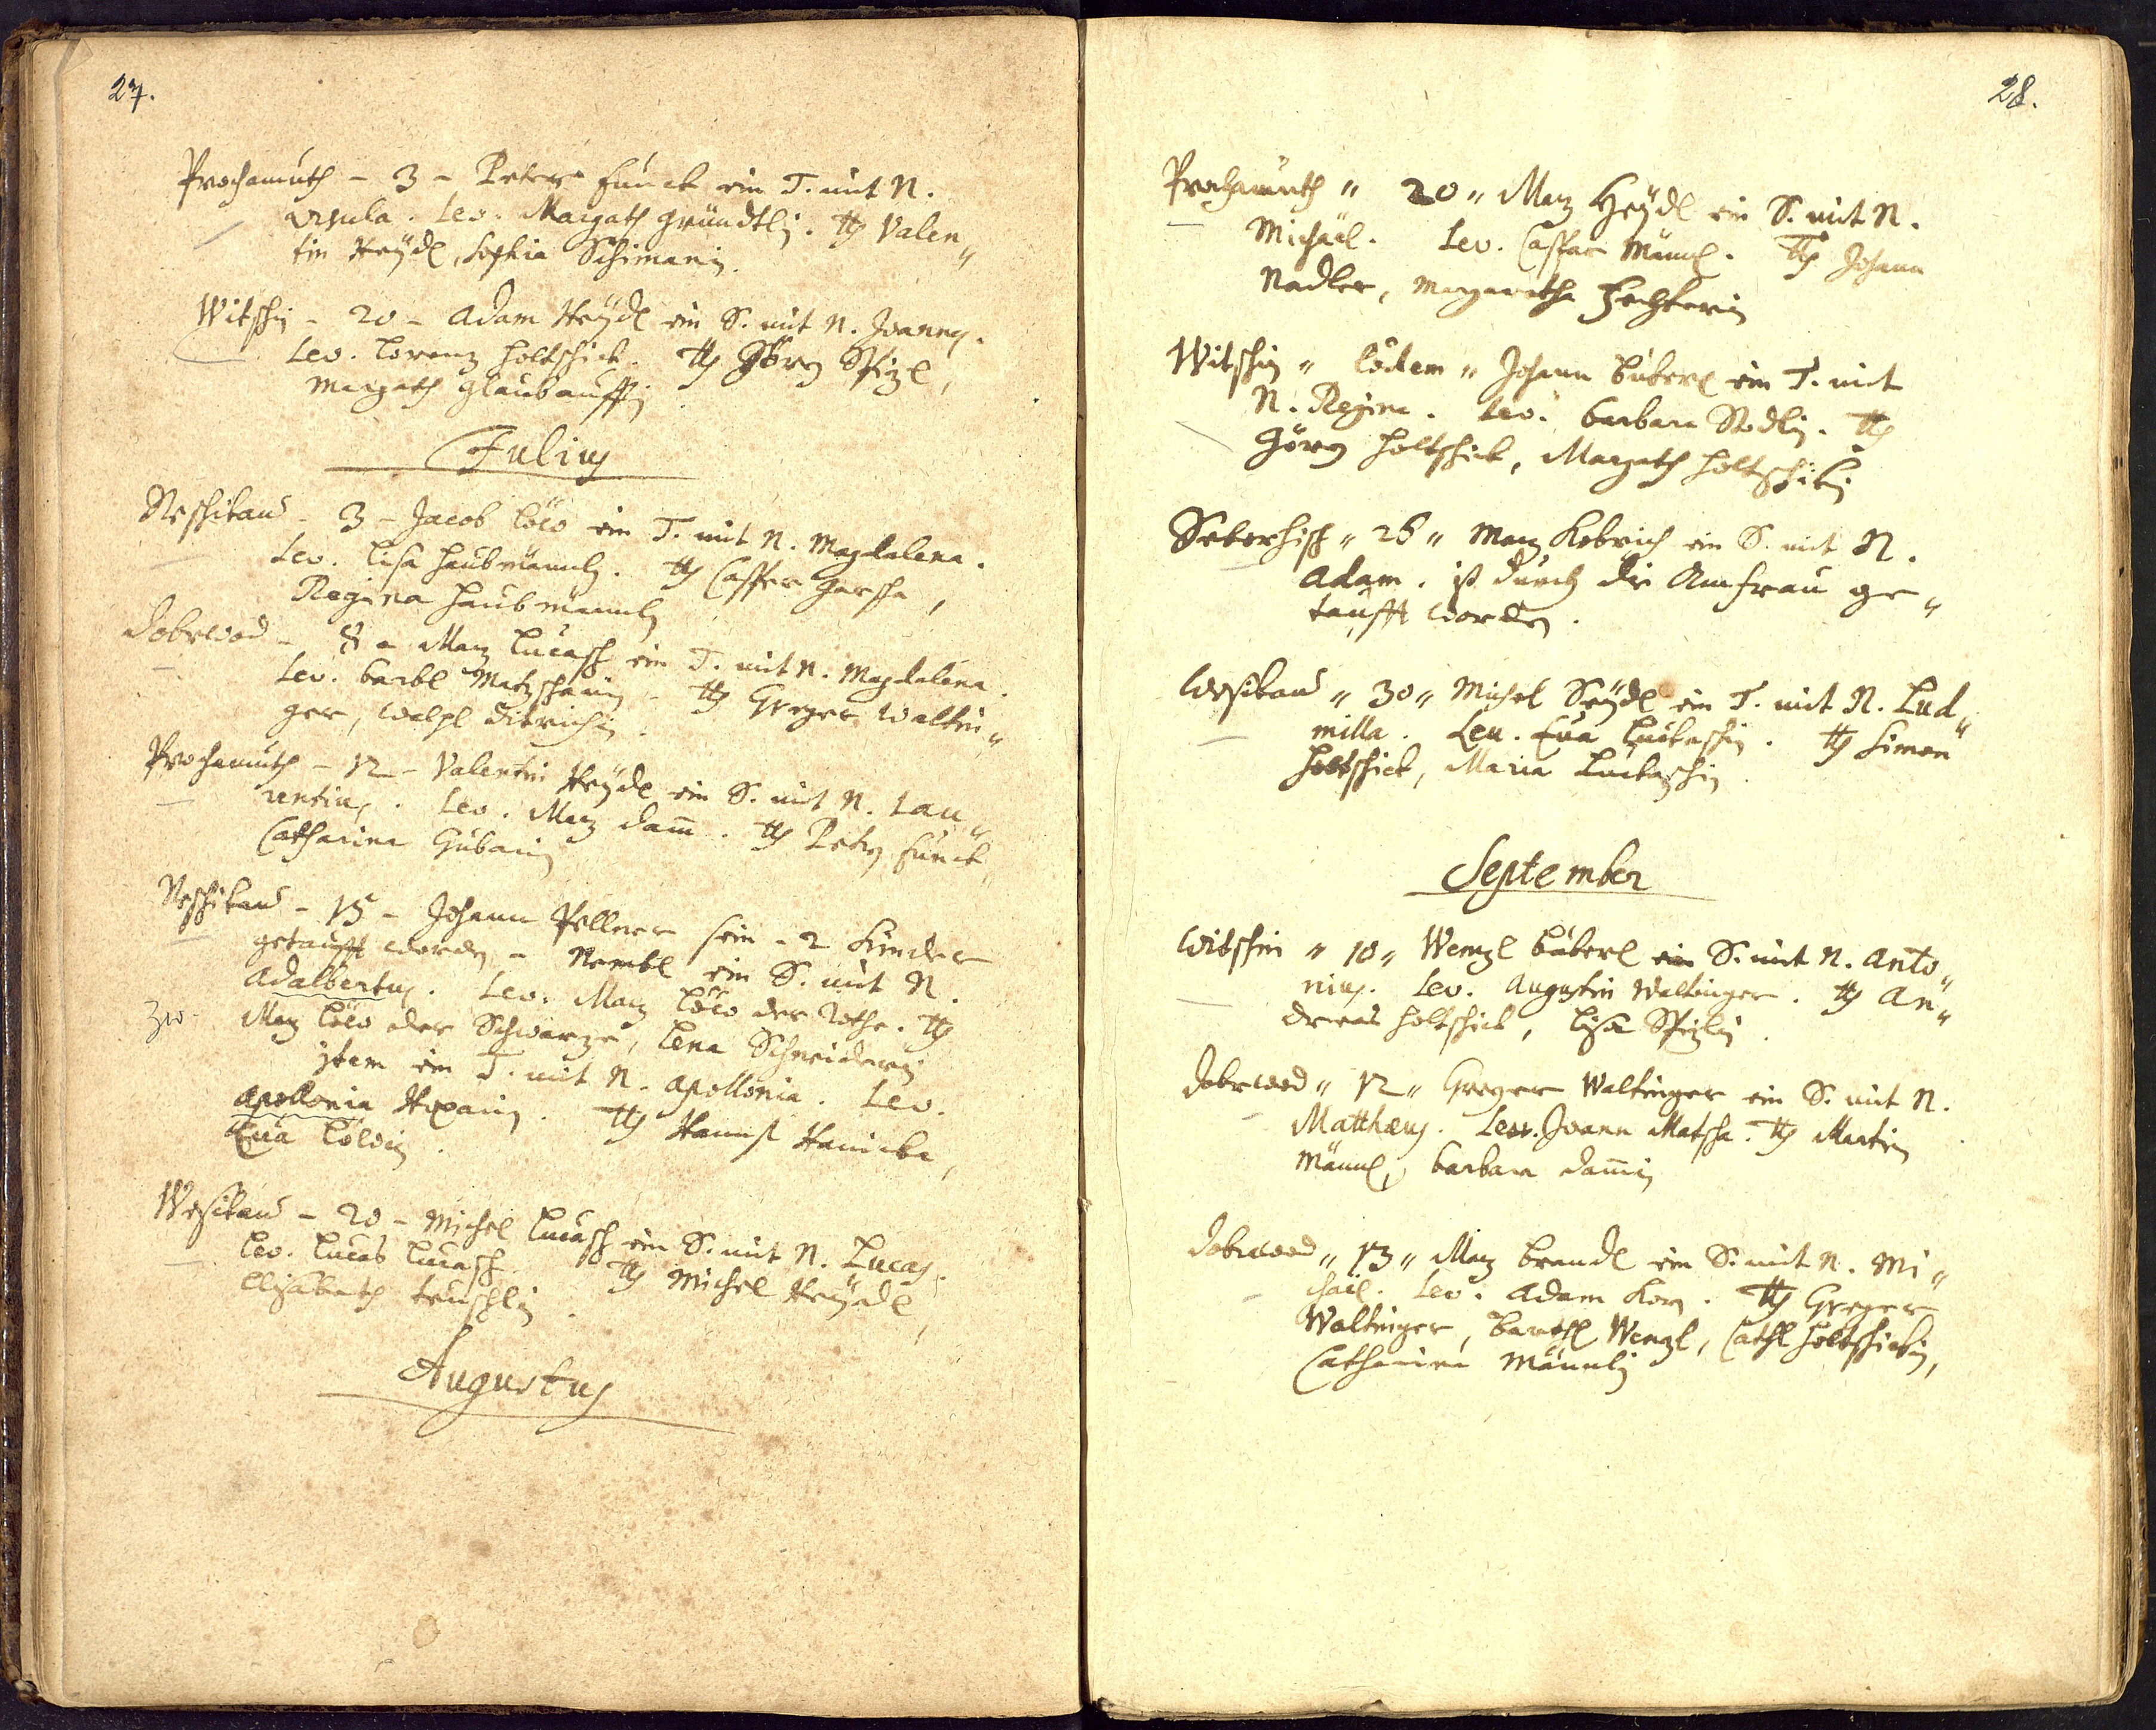 27.
Prochamuth - 3 - Peter Funck ein T. mit N.
Ursula. Lev. Margath Gründtlin. Tts Valen„
tin Heÿdl, Sophia Schimanin.
Witschin - 20 - Adam Heÿdl ein S. mit N. Joannes.
Lev. Lorenz Holtschick. Tts Görg Spizl,
Margath Glaubauffin
Julius
Neschikau - 3 - Jacob Löw ein T. mit N. Magdalena.
Lev. Lisa Haubmännlin. Tts Casper Garscha,
Regina Haubmännlin
Dobrwod - 8 - Marz Lucasch ein T. mit N. Magdalena.
Lev. Barbl Matzschanin - Tts Gregor Waltin„
ger, Walpl Ditrichin.
Prochamuth - 12 - Valentin Heÿdl ein S. mit N. Lau„
rentius. Lev. Marz Dam̄. Tts Peter Funck,
Catharina Gubanin
Neschikau - 15 - Johann Pellner sein - 2 Kinder
getaufft worden - Nembl ein S. mit N.
Adalbertus. Lev. Marz Löw der Rothe. Tts
Marz Löw der Schwarze, Lena Schneiderin
zw.
item ein T. mit N. Apollonia. Lev.
Apollonia Tts Hanns
Eva Löwin.
Weschikau - 20 - Michel Lucasch ein S. mit N. Lucas.
Lev. Lucas Lucasch. Tts Michel Heÿdl,
Elisabeth Teuschlin.
Augustus
28.
Prochamuth „ 20 „ Marz Heÿdl ein S. mit N.
Michäel. Lev. Casper Männl. Tts Johann
Nadler, Margaretha
Witschin „ Eodem „ Johann Büberl ein T. mit
N. Regina. Lev. Barbara Stodlin. Tts
Görg Holtschick, Margath Holtschikin
Seberhisch „ 28 „ Marz Kobrich ein S. mit N.
Adam. ist durch die Amfrau ge„
taufft worden.
Weschikau „ 30 „ Michel Seÿdl ein T. mit N. Lud„
milla. Lev. Eva Luckaschin. Tts Simon
Holtschick, Maria Luckaschin.
September
Witschin „ 10 „ Wenzl Büberl ein S. mit N. Anto„
nius. Lev. Augustin Waltinger. Tts An„
dreas Holtschick, Lisa Spizlin.
Dobrwod „ 12 „ Gregor Waltinger ein S. mit N.
Matthæus. Lev. Joann Matscha. Tts Martin
Männl, Barbara Dam̄in
Dobrwod „ 13 „ Marz Brandl ein S. mit N. Mi„
chäil. Lev. Adam Korn. Tts Gregor
Waltinger, Barthl Wenzl, Cathl Holtschickin,
Catharina Männlin